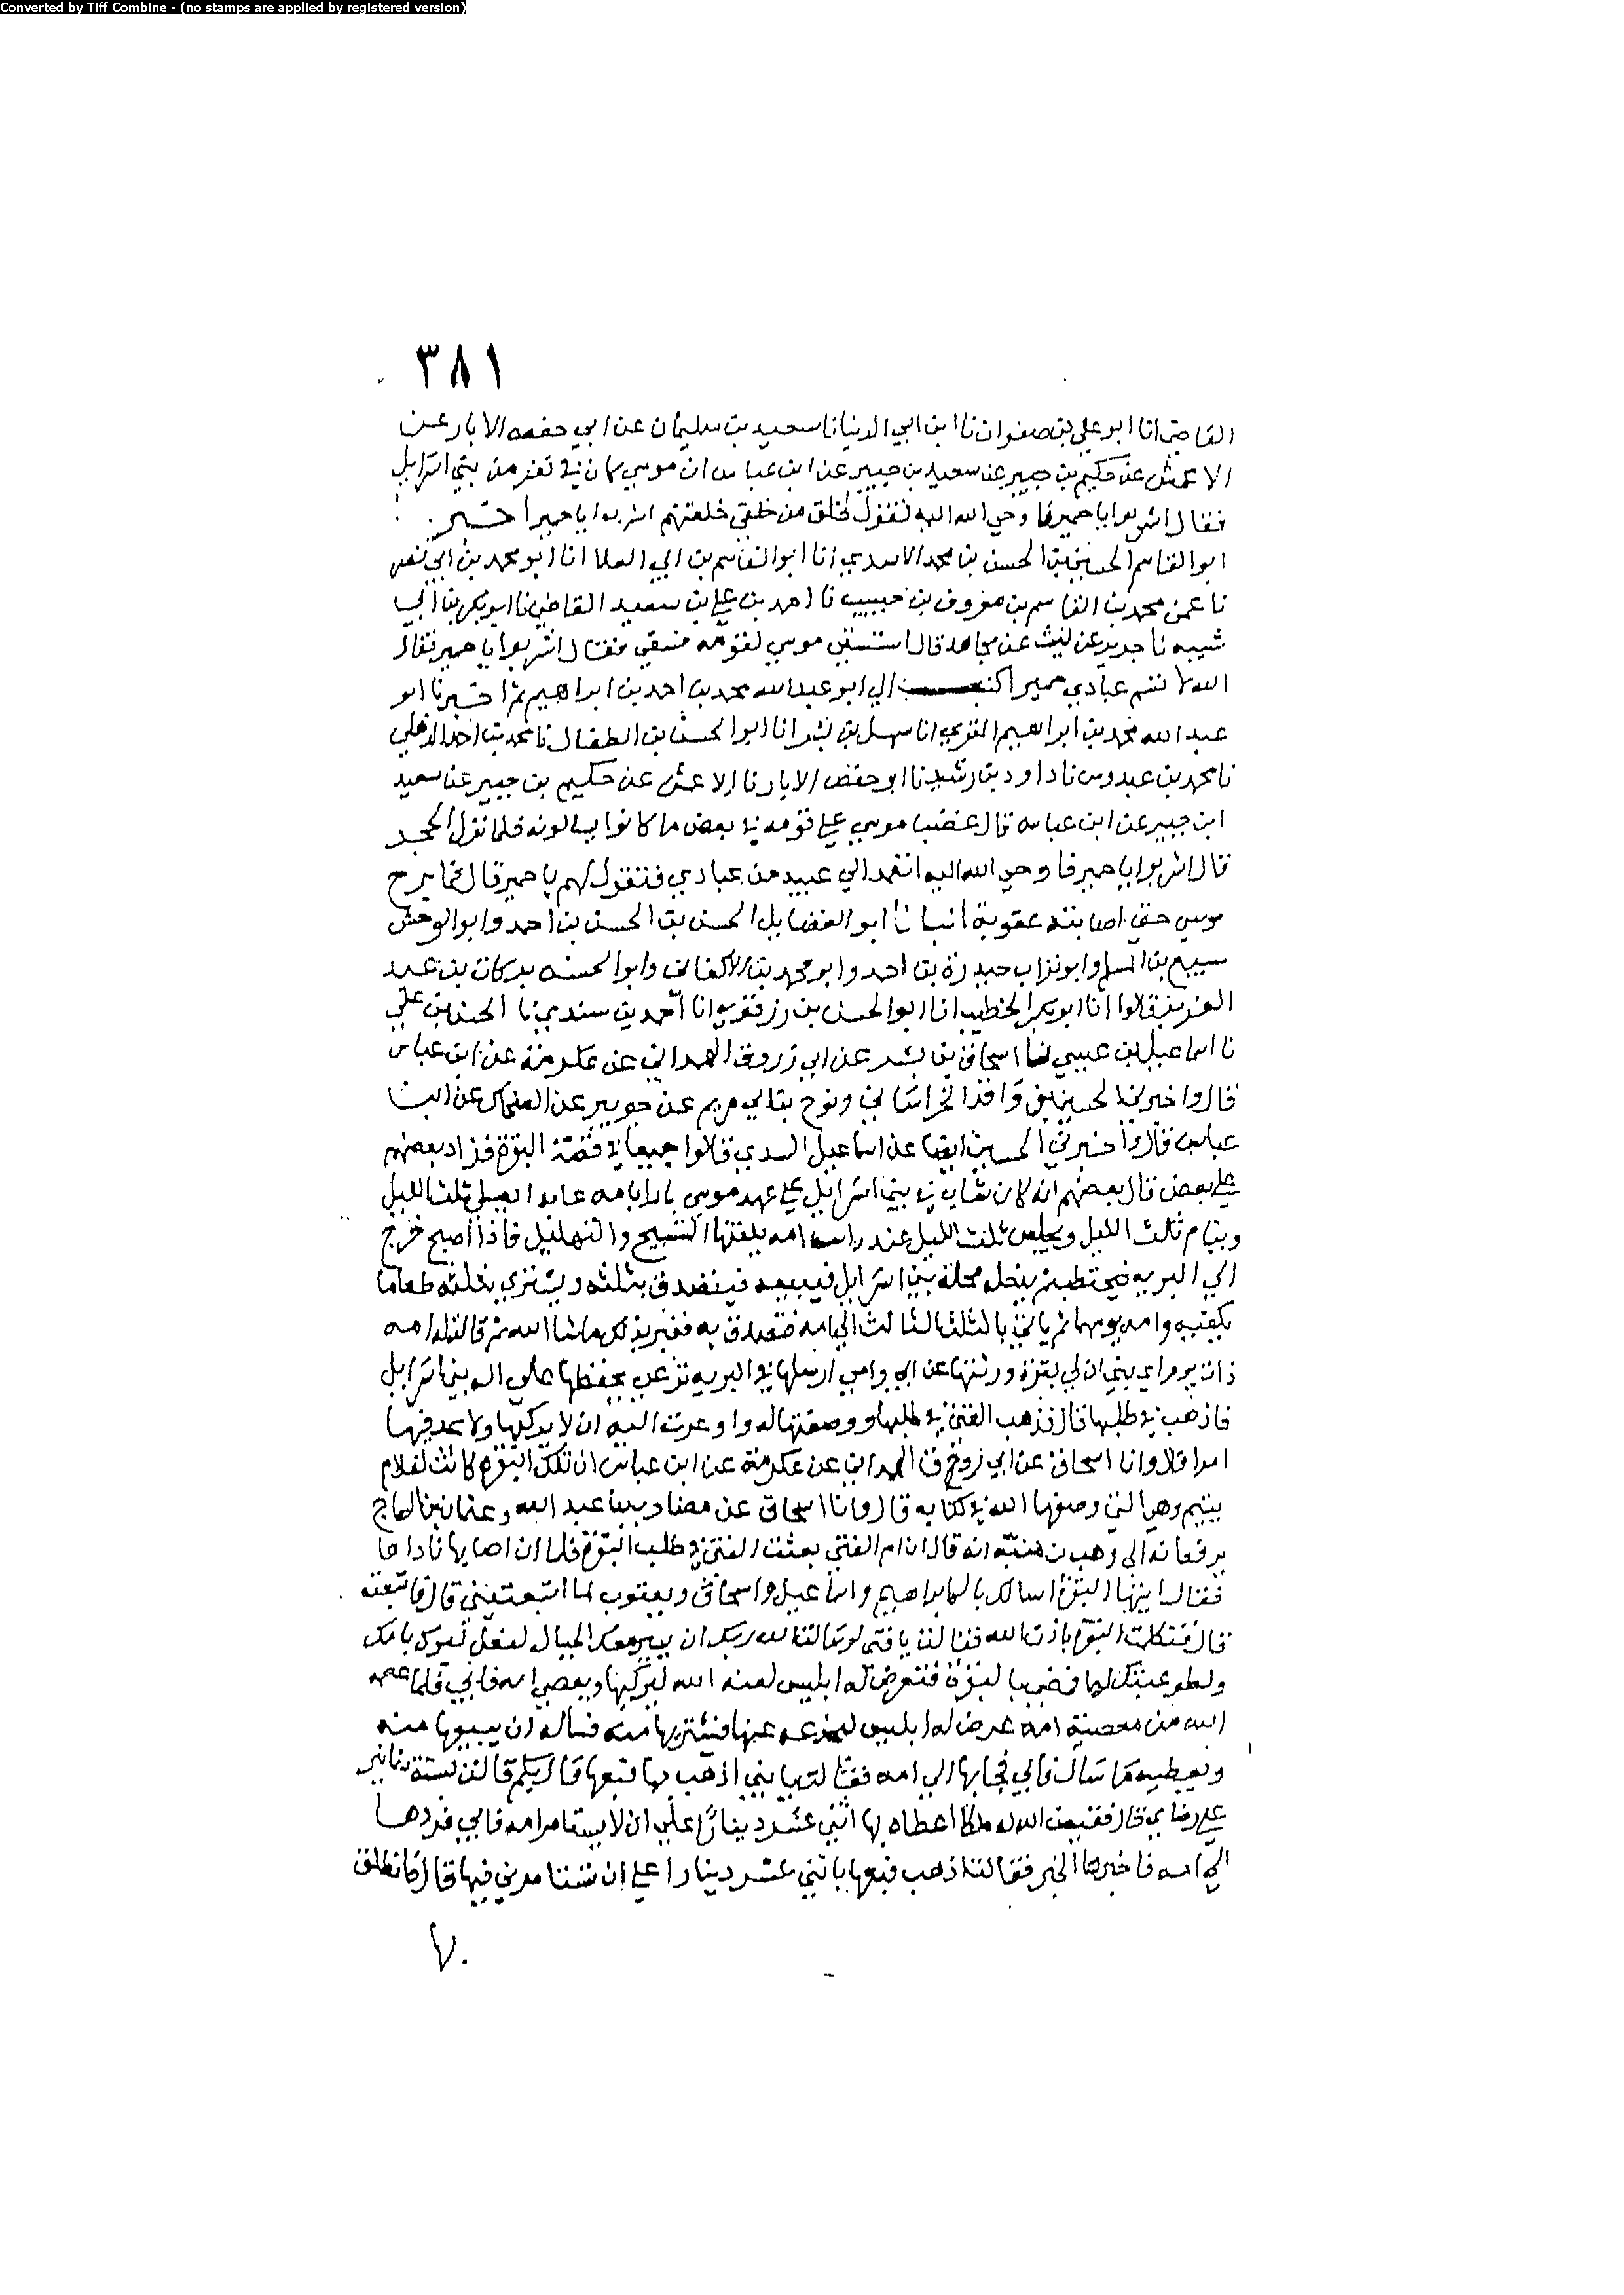 Converted by Tiff Combine - (no stamps are applied by registered version)
٣٨١
القاضي انا ابو علي بن صفوان نا ابن ابي الدنيا نا سعيد بن سليمان عن ابي حفص الابار عن
الاعمش عن حكيم بن جبير عن سعيد بن جبير عن ابن عباس ان موسى كان في نفر من بني اسرائيل
فقال اشربوا يا حمير فاوحى الله اليه تقول لخلق من خلقي خلقتهم اشربوا يا حمير اخبر
ابو القاسم الحسين بن الحسن بن محمد الاسدي انا ابو القاسم بن ابي العلا انا ابو محمد بن ابي نصر
نا عمي محمد بن القاسم بن معروف بن حبيب نا احمد بن علي بن سعيد القاضي نا ابو بكر بن ابي
شيبه نا جرير عن ليث عن مجاهد قال استسقى موسى لقومه فسقي فقال اشربوا يا حمير فقال
الله لا تسم عبادي حميرا كتب الي ابو عبد الله محمد بن احمد بن ابراهيم ثم اخبرنا ابو
عبد الله محمد بن ابراهيم المقري انا سهل بن بشر انا ابو الحسن بن الطفال نا محمد بن احمد الذهلي
نا محمد بن عبدوس نا داود بن رشيد نا ابو حفص الابار نا الاعمش عن حكيم بن جبير عن سعيد
ابن جبير عن ابن عباس قال غضب موسى على قومه في بعض ما كانوا يسالونه فلما نزل الحجر
قال اشربوا يا حمير فاوحى الله اليه اتعمد الي عبيد من عبادي فتقول لهم يا حمير قال فما برح
موسى حتى اصابته عقوبة انبانا ابو الفضايل الحسن بن الحسن بن احمد وابو الوحش
سبيع بن المسلم وابو تراب حيدرة بن احمد وابو محمد بن الاكفاني وابو الحسن بركات بن عبد
العزيز قالوا انا ابو بكر الخطيب انا ابو الحسن بن رزقويه انا احمد بن سندي نا الحسن بن علي
نا اسماعيل بن عيسى نا اسحاق بن بشر عن ابي روق الهمداني عن عكرمة عن ابن عباس
قال واخبرني الحسين بن واقد الخراساني ونوح بن ابي مريم عن جويبر عن الضحاك عن ابن
عباس قال واخبرني الحسين ايضا عن اسماعيل السدي قالوا جميعا في قصة البقرة فزاد بعضهم
على بعض قال بعضهم انه كان شاب في بني اسرائيل على عهد موسى بارا بامه عابدا يصلي ثلث الليل
وينام ثلث الليل ويجلس ثلث الليل عند راس امه يلقنها التسبيح والتهليل فاذا اصبح خرج
الي البريه فيحتطب ثم يدخله محلة بني اسرائيل فيبيعه فيتصدق بثلثه ويشتري بثلثه طعاما
يكفيه وامه يومهما ثم ياتي بالثلث الثالث الي امه فتصدق به فغبر بذلك ما شا الله ثم قالت له امه
ذات يوم اي بني ان لي بقرة ورثتها عن ابي وامي ارسلها في البريه ترعى يحفظها علي اله بني اسرايل
فاذهب في طلبها قال فذهب الفتى في طلبها ووصفتها له واوعزت اليه ان لا يركبها ولا يحدث فيها
امرا قال وانا اسحاق عن ابي روق الهمداني عن عكرمة عن ابن عباس ان تلك البقرة كانت لغلام
يتيم وهي التي وصفها الله في كتابه قال وانا اسحاق عن مضارب بن عبد الله وعثمان بن الحاج
يرفعانه الى وهب بن منبه انه قال ان ام الفتى بعثت الفتى في طلب البقرة فلما ان اصابها ناداها
فقال ايتها البقرة اسالك باله ابراهيم واسماعيل واسحاق ويعقوب لما اتبعتيني قال فاتبعته
قال فتكلمت البقرة باذن الله فقالت يا فتى لو سالت الله ربك ان يسير معك الجبال لفعل لبرك بامك
ولطوعيتك لها فضرب البقرة فتعرض له ابليس لعنه الله ليركبها ويعصي امه فابى فلما عصمه
الله من معصية امه عرض له ابليس ليخدعه عنها فيشتريها منه فساله ان يبيعها منه
ويعطيه ما سال فابى فجا بها الى امه فقالت يا بني اذهب بها فبعها قال بكم قالت بستة دنانير
على رضاي قال فقيض الله له ملكا اعطاه بها اثني عشر دينارا على ان لا يستامر امه فابى فردها
الى امه فاخبرها الخبر فقالت اذهب فبعها باثني عشر دينارا على ان تستامرني فيها قال فانطلق
٧٠